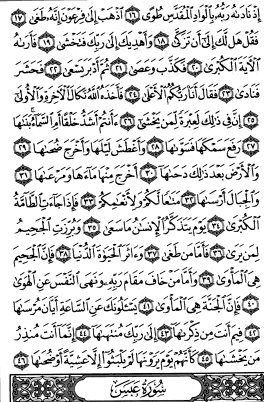 إِذْ نَادَىٰهُ رَبُّهُۥ بِٱلْوَادِ ٱلْمُقَدَّسِ طُوًى ١٦ ٱذْهَبْ إِلَىٰ فِرْعَوْنَ إِنَّهُۥ طَغَىٰ ١٧
فَقُلْ هَل لَّكَ إِلَىٰٓ أَن تَزَكَّىٰ ١٨ وَأَهْدِيَكَ إِلَىٰ رَبِّكَ فَتَخْشَىٰ ١٩ فَأَرَىٰهُ
ٱلْـَٔايَةَ ٱلْكُبْرَىٰ ٢٠ فَكَذَّبَ وَعَصَىٰ ٢١ ثُمَّ أَدْبَرَ يَسْعَىٰ ٢٢ فَحَشَرَ
فَنَادَىٰ ٢٣ فَقَالَ أَنَا۠ رَبُّكُمُ ٱلْأَعْلَىٰ ٢٤ فَأَخَذَهُ ٱللَّهُ نَكَالَ ٱلْـَٔاخِرَةِ وَٱلْأُولَىٰٓ
٢٥ إِنَّ فِي ذَٰلِكَ لَعِبْرَةً لِّمَن يَخْشَىٰٓ ٢٦ ءَأَنتُمْ أَشَدُّ خَلْقًا أَمِ ٱلسَّمَآءُ ۚ بَنَىٰهَا
٢٧ رَفَعَ سَمْكَهَا فَسَوَّىٰهَا ٢٨ وَأَغْطَشَ لَيْلَهَا وَأَخْرَجَ ضُحَىٰهَا ٢٩
وَٱلْأَرْضَ بَعْدَ ذَٰلِكَ دَحَىٰهَآ ٣٠ أَخْرَجَ مِنْهَا مَآءَهَا وَمَرْعَىٰهَا ٣١
وَٱلْجِبَالَ أَرْسَىٰهَا ٣٢ مَتَٰعًا لَّكُمْ وَلِأَنْعَٰمِكُمْ ٣٣ فَإِذَا جَآءَتِ ٱلطَّآمَّةُ
ٱلْكُبْرَىٰ ٣٤ يَوْمَ يَتَذَكَّرُ ٱلْإِنسَٰنُ مَا سَعَىٰ ٣٥ وَبُرِّزَتِ ٱلْجَحِيمُ
لِمَن يَرَىٰ ٣٦ فَأَمَّا مَن طَغَىٰ ٣٧ وَءَاثَرَ ٱلْحَيَوٰةَ ٱلدُّنْيَا ٣٨ فَإِنَّ ٱلْجَحِيمَ
هِيَ ٱلْمَأْوَىٰ ٣٩ وَأَمَّا مَنْ خَافَ مَقَامَ رَبِّهِۦ وَنَهَى ٱلنَّفْسَ عَنِ ٱلْهَوَىٰ
٤٠ فَإِنَّ ٱلْجَنَّةَ هِيَ ٱلْمَأْوَىٰ ٤١ يَسْـَٔلُونَكَ عَنِ ٱلسَّاعَةِ أَيَّانَ مُرْسَىٰهَا
٤٢ فِيمَ أَنتَ مِن ذِكْرَىٰهَآ ٤٣ إِلَىٰ رَبِّكَ مُنتَهَىٰهَآ ٤٤ إِنَّمَآ أَنتَ مُنذِرُ
مَن يَخْشَىٰهَا ٤٥ كَأَنَّهُمْ يَوْمَ يَرَوْنَهَا لَمْ يَلْبَثُوٓا۟ إِلَّا عَشِيَّةً أَوْ ضُحَىٰهَا ٤٦
سُورَةُ عَبَسَ